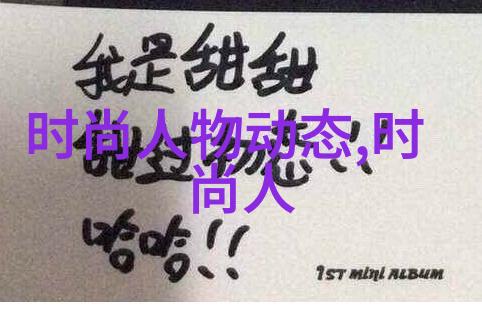 我是甜甜
时尚人物动态,时
尚人
甜过初恋!!
哈哈!!
1ST MINI ALBUM